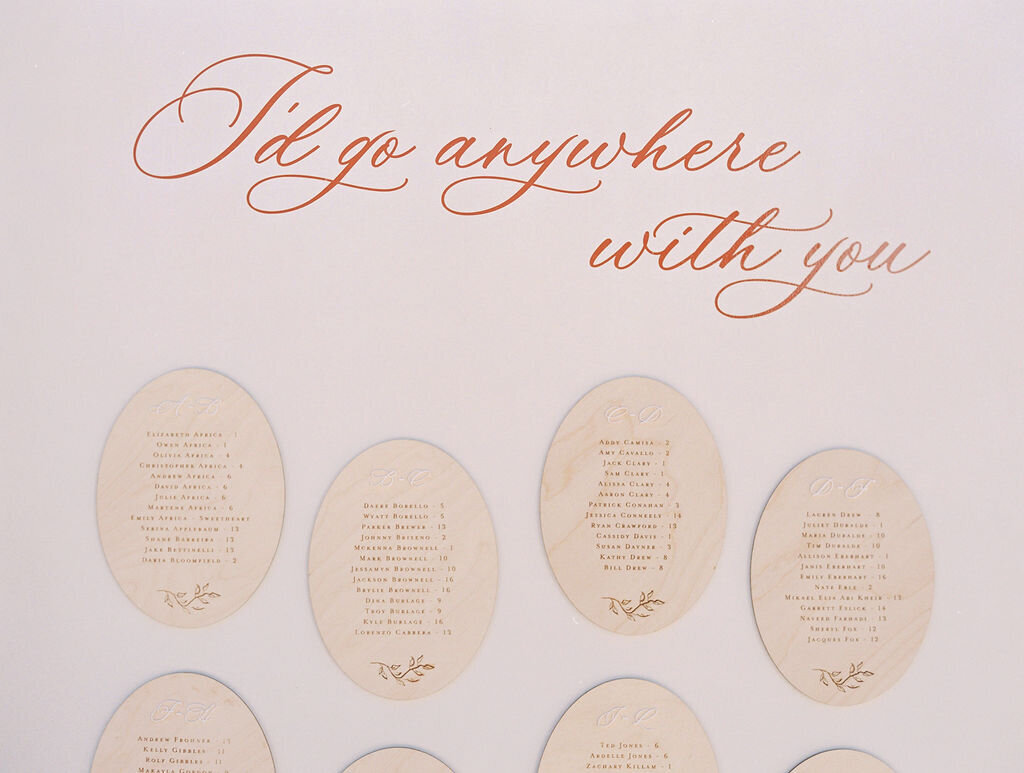 I'd go anywhere
with you
A-B
Elizabeth Africa - 1
Owen Africa - 1
Olivia Africa - 4
Christopher Africa - 4
Andrew Africa - 6
David Africa - 6
Julie Africa - 6
Martene Africa - 6
Emily Africa - Sweetheart
Serina Applebaum - 13
Shane Barreira - 13
Jake Bettinelli - 13
Daria Bloomfield - 2
B-C
Daere Borello - 5
Wyatt Borello - 5
Parker Brewer - 13
Johnny Briseno - 2
McKenna Brownell - 1
Mark Brownell - 10
Jessamyn Brownell - 10
Jackson Brownell - 16
Brylie Brownell - 16
Dina Burlage - 9
Troy Burlage - 9
Kyle Burlage - 16
Lorenzo Cabrera - 13
C-D
Addy Camisa - 2
Amy Cavallo - 2
Jack Clary - 1
Sam Clary - 1
Alissa Clary - 4
Aaron Clary - 4
Patrick Conahan - 3
Jessica Conneely - 14
Ryan Crawford - 13
Cassidy Davis - 1
Susan Dayner - 3
Kathy Drew - 8
Bill Drew - 8
D-F
Lauren Drew - 8
Juliet Dubalde - 1
Maria Dubalde - 10
Tim Dubalde - 10
Allison Eberhart - 1
Janis Eberhart - 10
Emily Eberhart - 16
Nate Eble - 2
Mikael Elia Abi Kheir - 13
Garrett Eslick - 14
Naveed Farhadi - 13
Sheryl Fox - 12
Jacques Fox - 12
F-H
Andrew Frohner - 13
Kelly Gibbles - 11
Rolf Gibbles - 11
J-L
Ted Jones - 6
Ardelle Jones - 6
Zachary Killam - 1